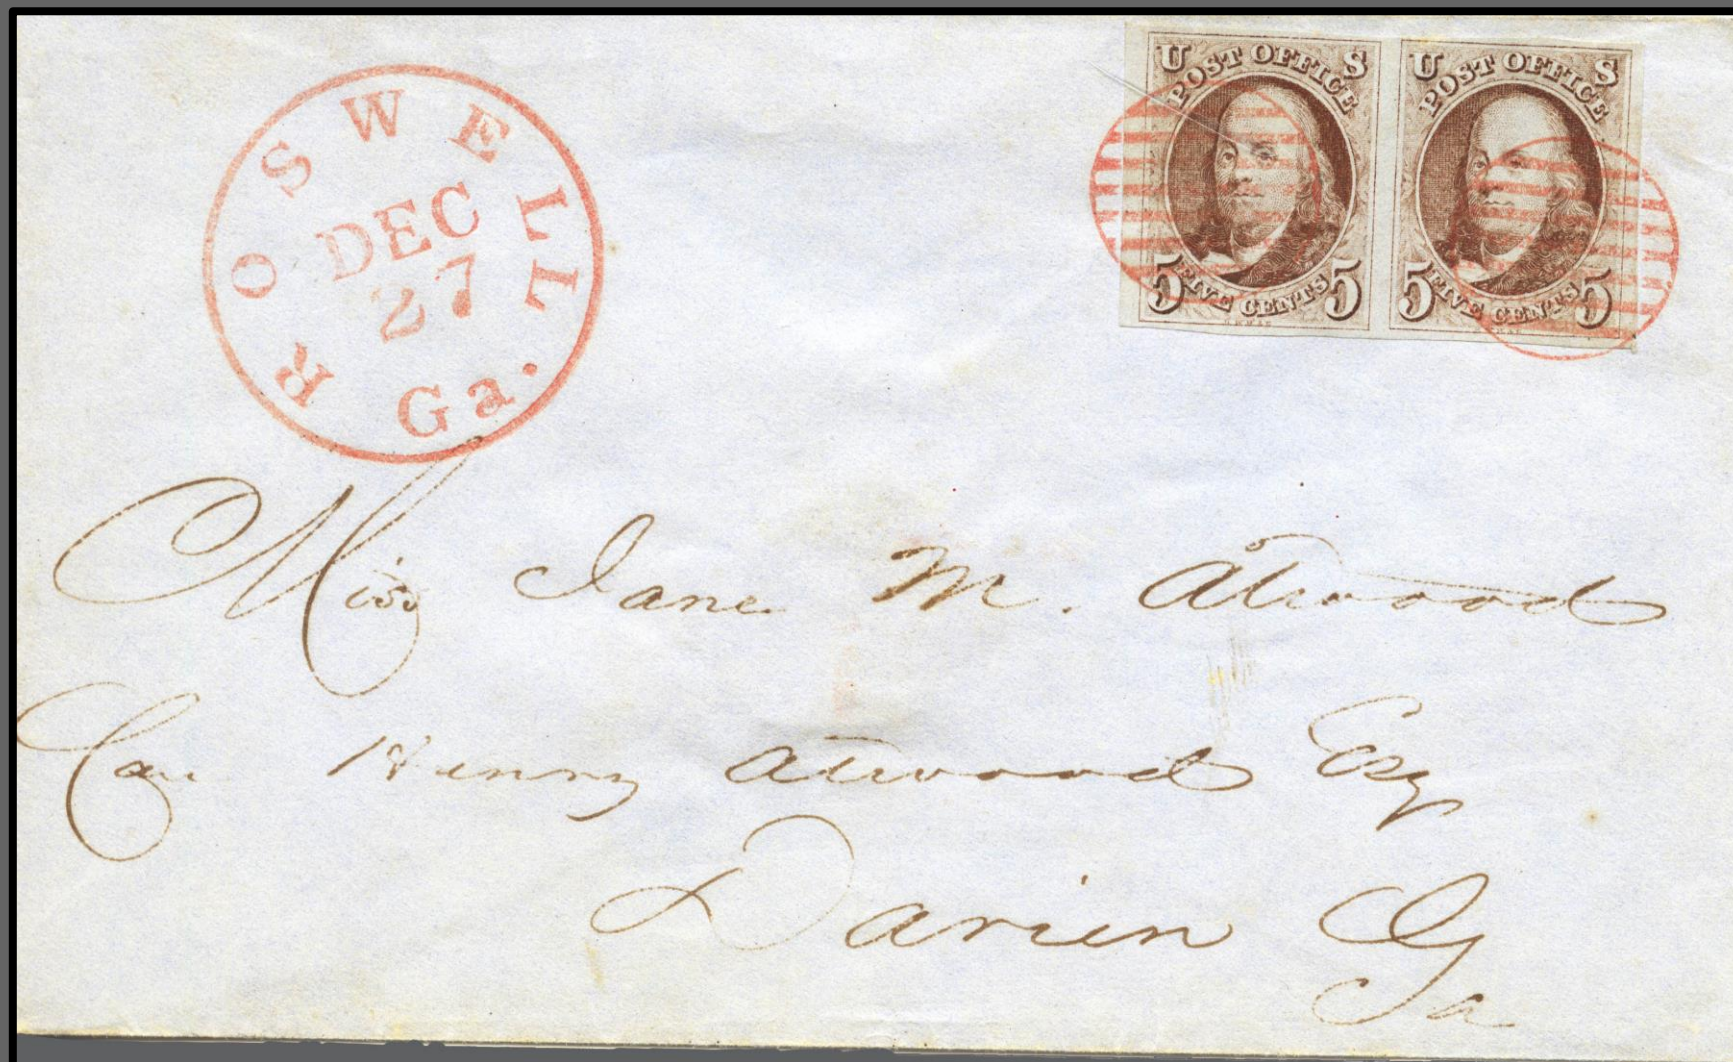 ROSWELL
DEC
27
Ga.
U S
POST OFFICE
5 FIVE CENTS 5
U S
POST OFFICE
5 FIVE CENTS 5
Miss Jane M. Atwood
Care Henry Atwood Esq
Darien Ga